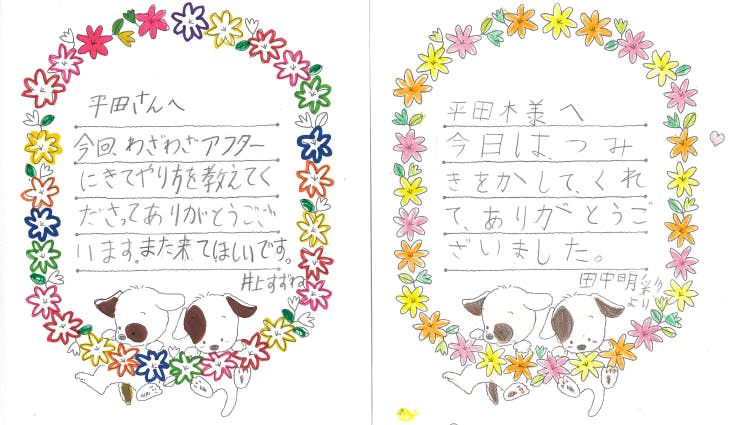 平田さんへ
今回、わざわざアフター
にきてやり方を教えてく
ださってありがとうござ
います。また来てほしいです。
井上すずね
平田木様へ
今日は、つみ
きをかして、くれ
て、ありがとうご
ざいました。
田中明
より